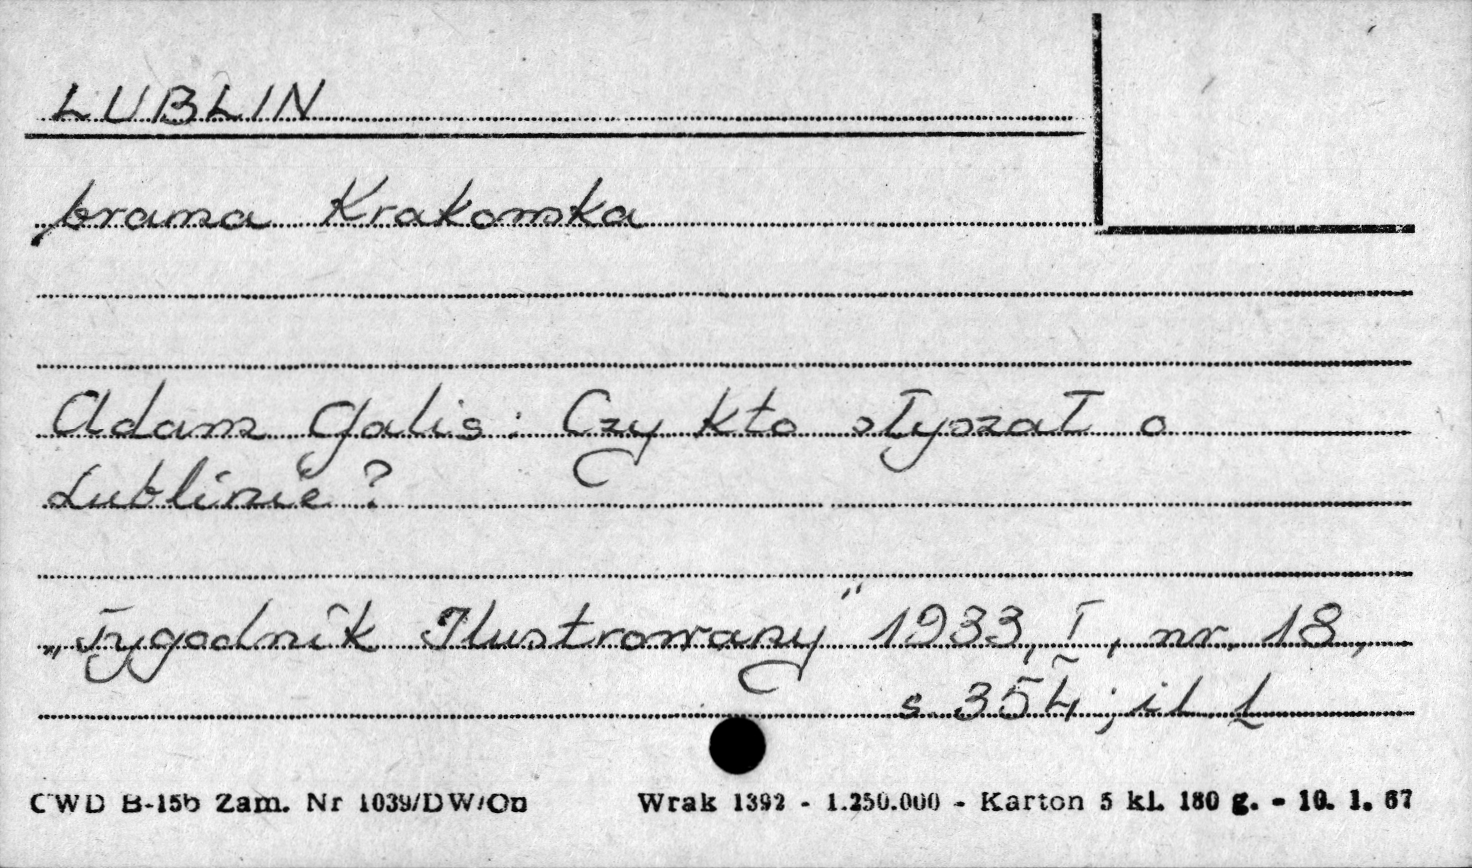 LUBLIN
brama Krakowska
Adam Galis: Czy kto słyszał o
Lublinie?
„Tygodnik Ilustrowany" 1933, I, nr. 18,
s. 354; il. 1
CWD B-15b Zam. Nr 1039/DW/On Wrak 1392 - 1.250.000 - Karton 5 kl. 180 g. - 10. 1. 67